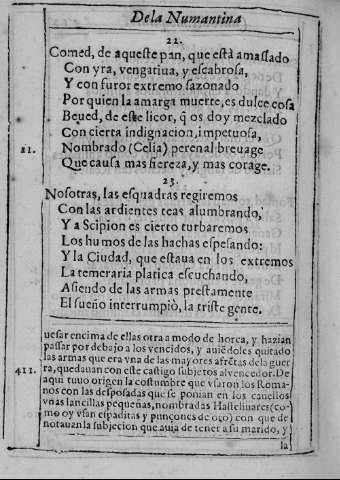 De la Numantina
22.
Comed, de aqueste pan, que està amassado
Con yra, vengatiua, y escabrosa,
Y con furor extremo sazonado
Por quien la amarga muerte, es dulce cosa
Beued, de este licor, q̃ os doy mezclado
Con cierta indignacion, impetuosa,
21. Nombrado (Celia) perenal breuage
Que causa mas fiereza, y mas corage.
23.
Nosotras, las esquadras regiremos
Con las ardientes teas alumbrando,
Y a Scipion es cierto turbaremos
Los humos de las hachas espesando:
Y la Ciudad, que estaua en los extremos
La temeraria platica escuchando,
Asiendo de las armas prestamente
El sueño interrumpiò, la triste gente.
uesar encima de ellas otra a modo de horca, y hazian
passar por debajo a los vencidos, y auiẽdoles quitado
las armas que era vna de las mayores afrẽtas dela guer
ra, quedauan con este castigo subjetos al vencedor. De
411. aqui tuuo origen la costumbre que vsaron los Roma-
nos con las desposadas que se ponian en los cauellos
vnas lancillas pequeñas, nombradas Hastelinares (co-
mo oy vsan espaditas y punçones de oro) con que de
notauan la subjecion que auia de tener a su marido, y
la